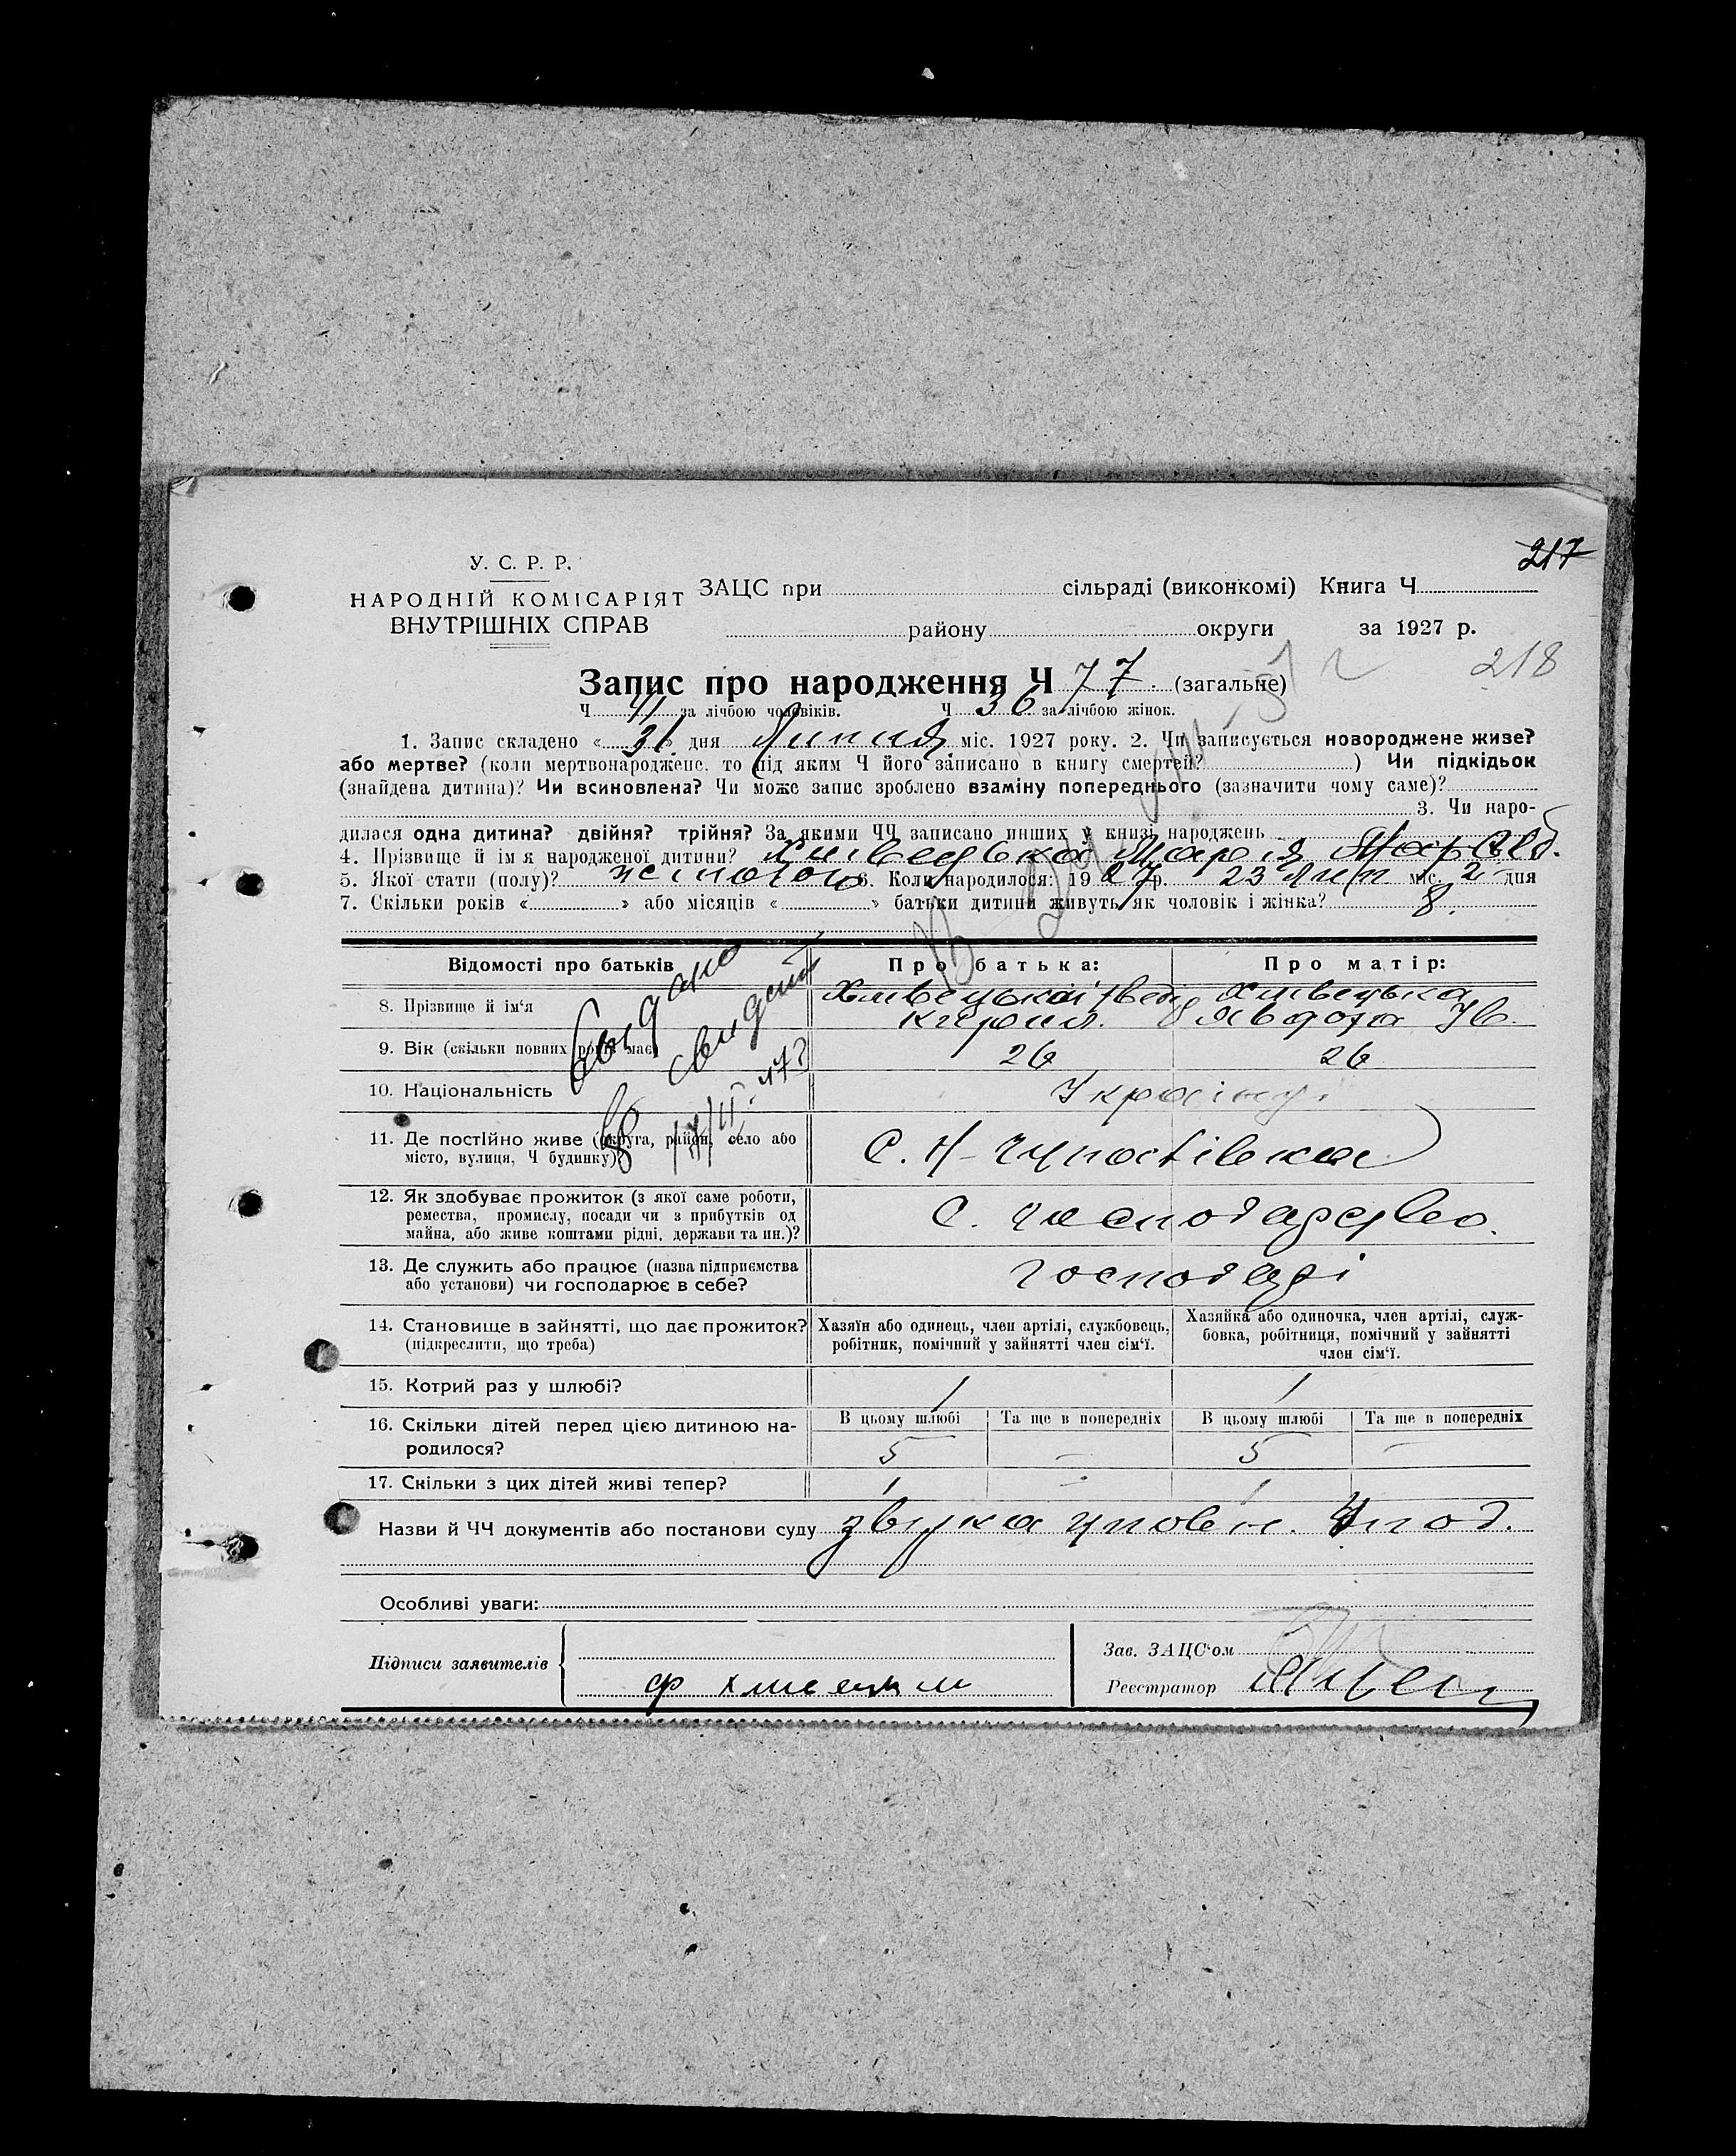 217
У. С. Р. Р.
НАРОДНІЙ КОМІСАРІЯТ
ВНУТРІШНІХ СПРАВ
ЗАЦС при сільраді (виконкомі) Книга Ч
району округи за 1927 р.
218
Запис про народження Ч 77. (загальне)
Ч 41 за лічбою чоловіків. Ч 36 за лічбою жінок.
1. Запис складено « 31 » дня Липня міс. 1927 року. 2. Чи записується новороджене живе?
або мертве? (коли мертвонароджене, то під яким Ч його записано в книгу смертей? ) Чи підкідьок
(знайдена дитина)? Чи всиновлена? Чи може запис зроблено взаміну попереднього (зазначити чому саме)?
3. Чи наро-
дилася одна дитина? двійня? трійня? За якими ЧЧ записано инших у книзі народжень
4. Прізвище й ім'я народженої дитини? Хмівецька Марія
5. Якої стати (полу)? жіночою 6. Коли народилося: 1927 р. 23 Лип міс. 2 дня
7. Скільки років « » або місяців « » батьки дитини живуть як чоловік і жінка? 8.
Відомості про батьків Про батька: Про матір:
8. Прізвище й ім'я
9. Вік (скільки повних років має) 26 26
10. Національність Україн
11. Де постійно живе (округа, район, село або
місто, вулиця, Ч будинку)?
12. Як здобуває прожиток (з якої саме роботи,
ремества, промислу, посади чи з прибутків од
майна, або живе коштами рідні, держави та ин.)?
С. господарство.
13. Де служить або працює (назва підприємства
або установи) чи господарює в себе?
господарі
14. Становище в зайнятті, що дає прожиток?
(підкреслити, що треба)
Хазяїн або одинець, член артілі, службовець,
робітник, помічний у зайнятті член сім'ї.
Хазяйка або одиночка, член артілі, служ-
бовка, робітниця, помічний у зайнятті
член сім'ї.
15. Котрий раз у шлюбі? 1 1
16. Скільки дітей перед цією дитиною на-
родилося?
В цьому шлюбі Та ще в попередніх В цьому шлюбі Та ще в попередніх
5 - 5 -
17. Скільки з цих дітей живі тепер? 1 - 1
Назви й ЧЧ документів або постанови суду
Особливі уваги:
Підписи заявителів
Зав. ЗАЦС'ом
Реєстратор